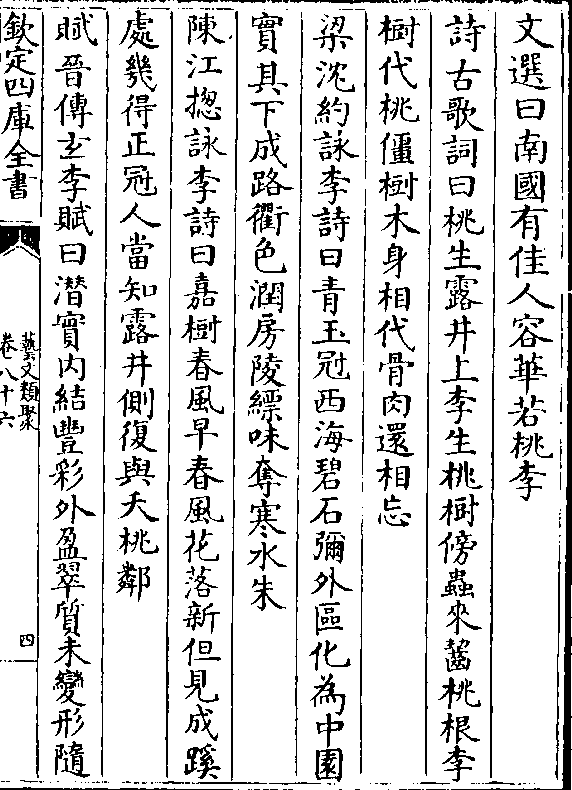 文選曰南國有佳人容華若桃李
詩古歌詞曰桃生露井上李生桃樹傍蟲來齧桃根李
樹代桃僵樹木身相代骨肉還相忘
梁沈約詠李詩曰青玉冠西海碧石彌外區化為中園
實其下成路衢色潤房陵縹味奪寒水朱
陳江揔詠李詩曰嘉樹春風早春風花落新但見成蹊
處幾得正冠人當知露井側復與夭桃鄰
賦晉傅玄李賦曰潛實内結豐彩外盈翠質未變形隨
欽定四庫全書
藝文類聚
卷八十六
四